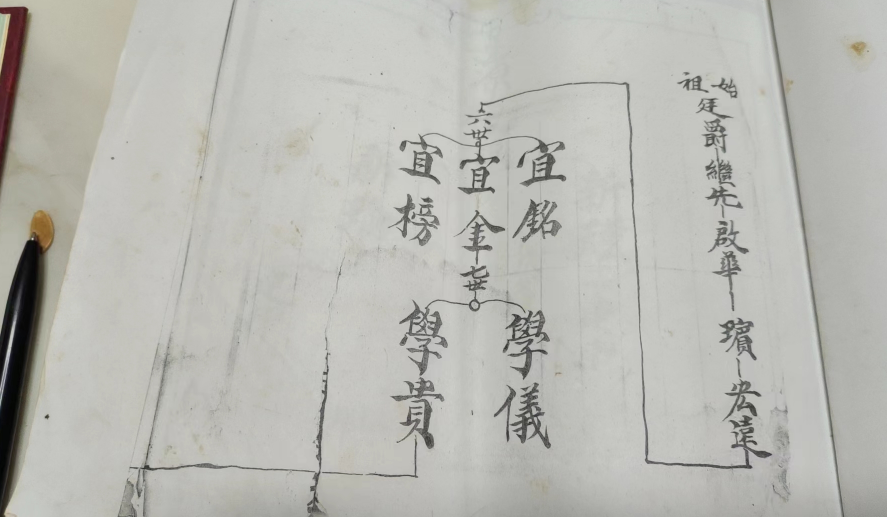 始祖廷爵－繼先－啟華－璸－宏遠
六世
宜銘
宜金
宜榜
七世
學儀
學貴